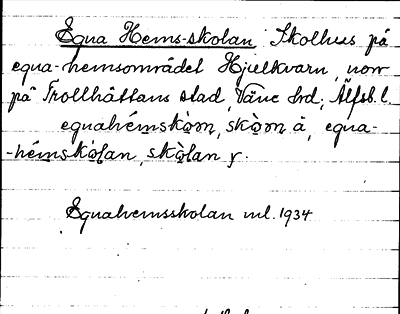 Egna Hems-skolan Skolhus på
egna-hemsområdet Hjulkvarn, norr
på Trollhättans stad, Väne hrd; Älfsb. l.
egnahémskò̤m, skò̤m å, egna-
-hémskò̤lan, skò̤lan y.
Egnahemsskolan ml. 1934